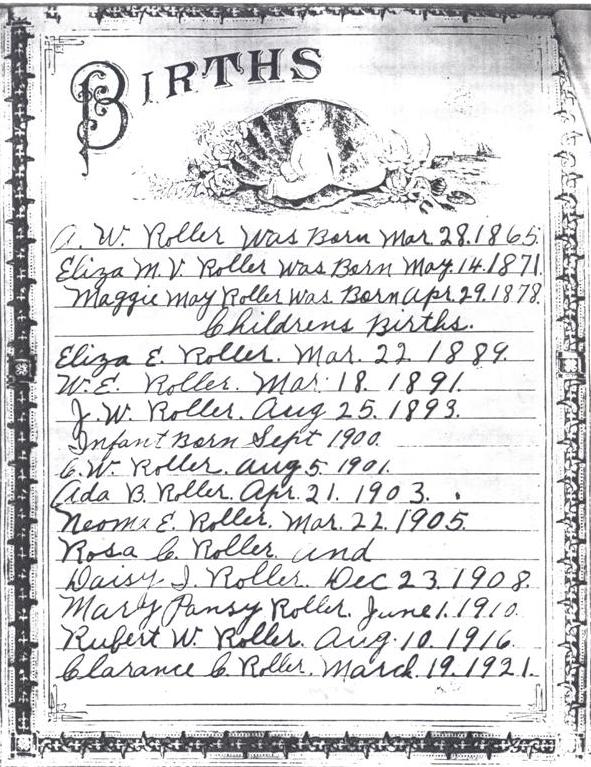 BIRTHS
A. W. Roller Was Born Mar. 28. 1865.
Eliza M. V. Roller Was Born May. 14. 1871.
Maggie May Roller Was Born Apr. 29. 1878.
Childrens Births.
Eliza E. Roller. Mar. 22. 1889.
W. E. Roller. Mar. 18. 1891.
J. W. Roller. Aug 25. 1893.
Infant Born Sept 1900.
C. W. Roller. Aug 5. 1901.
Ada B. Roller. Apr. 21. 1903.
Neoma E. Roller. Mar. 22. 1905.
Rosa C. Roller. and
Daisy J. Roller. Dec 23. 1908.
Mary Pansy Roller. June 1. 1910.
Rubert W. Roller. Aug. 10. 1916.
Clarance C. Roller. March. 19. 1921.